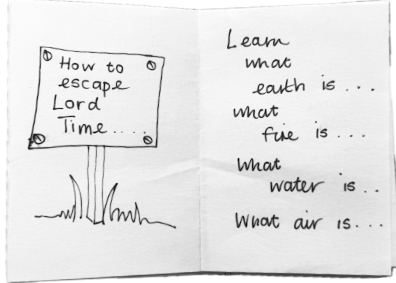 How to
escape
Lord
Time....
Learn
what
earth is...
what
fire is...
What
water is..
What air is...